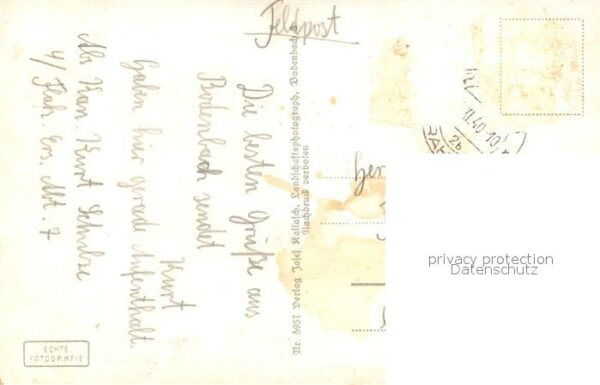 Feldpost
Die besten Grüße aus
Bodenbach sendet
Kurt
Haben hier gerade Aufenthalt.
Abs Kan. Kurt Schulze
4/ Flak. Ers. Abt. 7
Nr. 5937 Verlag Josef Kallasch, Landschaftsphotograph, Bodenbach
Nachdruck verboten
Her
XI.40-10
2b
privacy protection
Datenschutz
ECHTE
FOTOGRAFIE